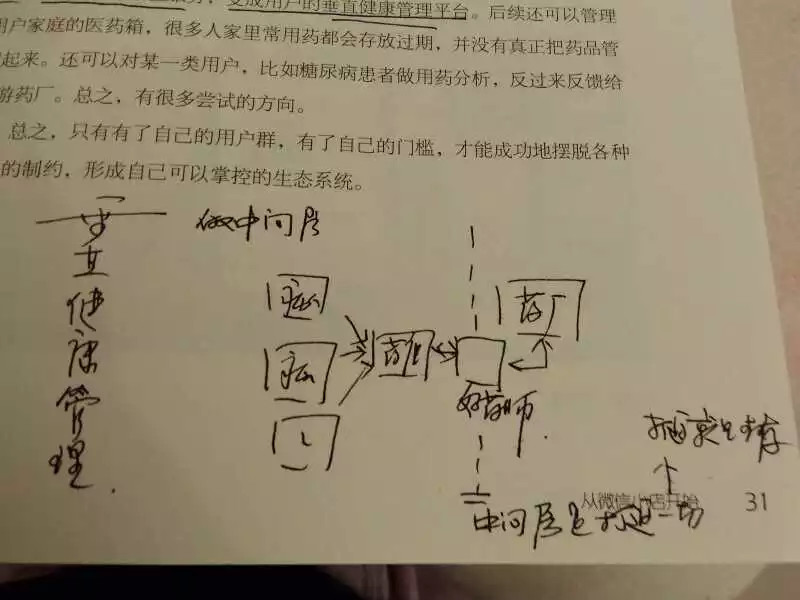 变成用户的垂直健康管理平台。后续还可以管理
用户家庭的医药箱，很多人家里常用药都会存放过期，并没有真正把药品管
起来。还可以对某一类用户，比如糖尿病患者做用药分析，反过来反馈给
游药厂。总之，有很多尝试的方向。
总之，只有有了自己的用户群，有了自己的门槛，才能成功地摆脱各种
的制约，形成自己可以掌控的生态系统。
做中间层
垂直健康管理.
病
病
药店
药厂
好药师
从微信小店开始
31
中间层 一切